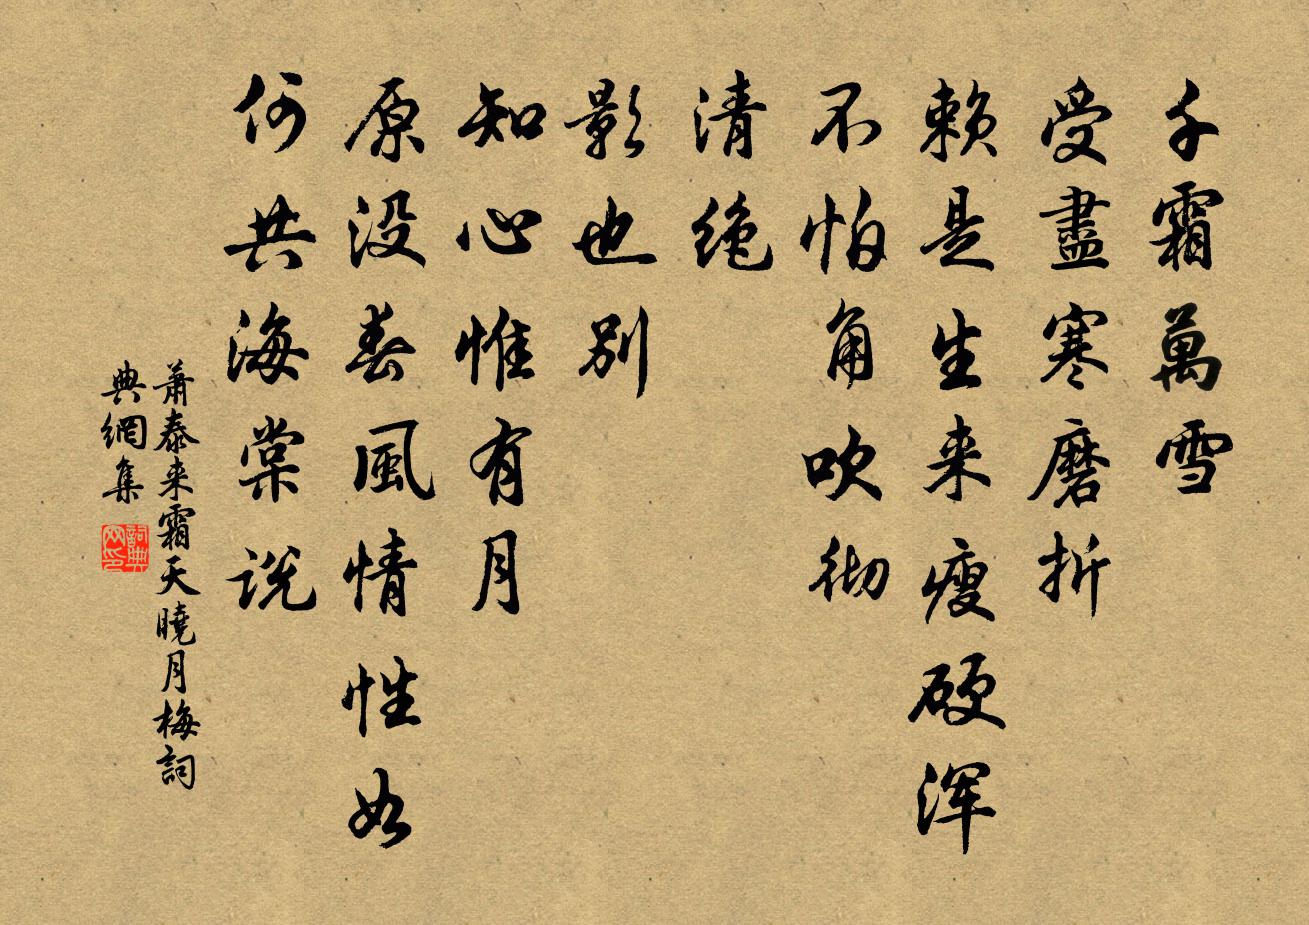 千霜萬雪
受盡寒磨折
賴是生来瘦硬浑
不怕角吹彻
清绝
影也别
知心惟有月
原没春風情性如
何共海棠说
萧泰来霜天曉月梅詞
典網集
詞典网印